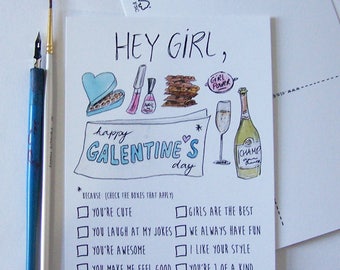 HEY GIRL,
GIRL POWER
happy
GALENTINE'S
day
*BECAUSE: (CHECK THE BOXES THAT APPLY)
YOU'RE CUTE
GIRLS ARE THE BEST
YOU LAUGH AT MY JOKES
WE ALWAYS HAVE FUN
YOU'RE AWESOME
I LIKE YOUR STYLE
YOU MAKE ME FEEL GOOD
YOU'RE 1 OF A KIND